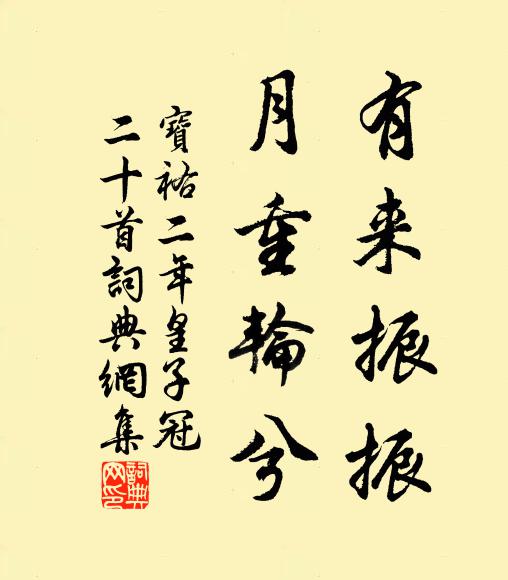 有来振振
月重輪兮
寶祐二年皇子冠
二十首詞典網集
詞典网印